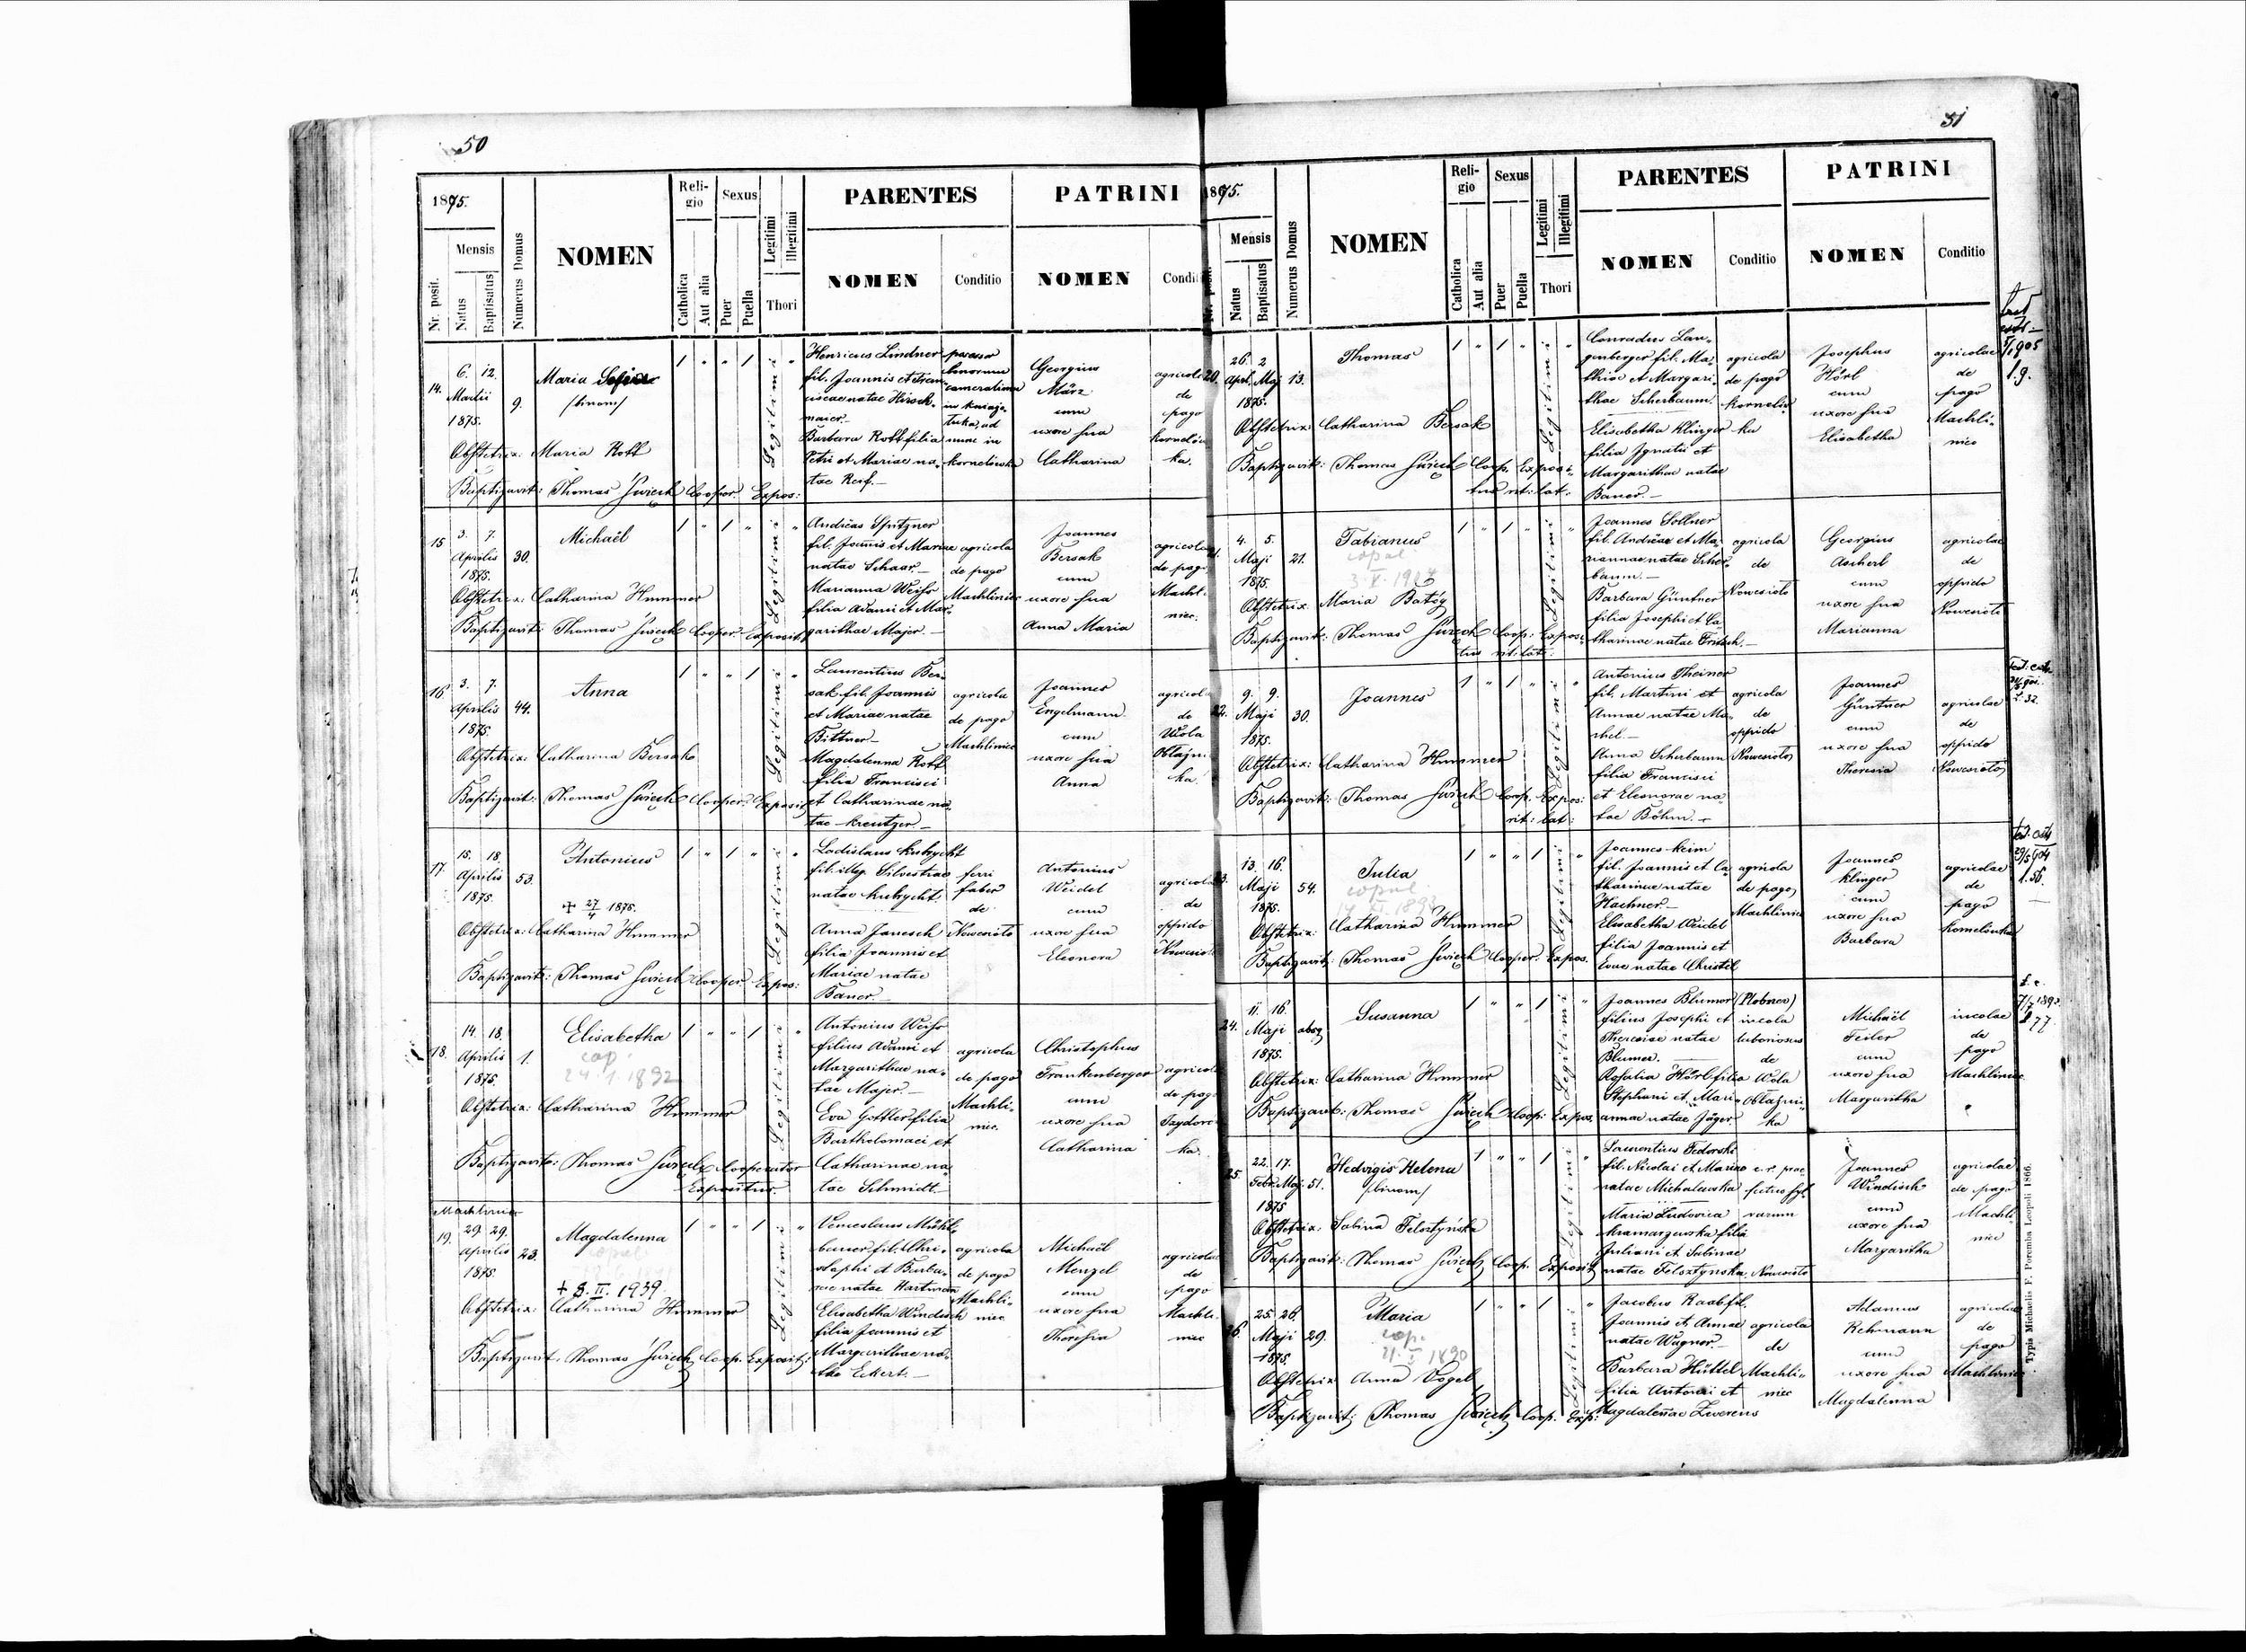 50
1875.
Nr. posit.
Mensis
Natus
Baptisatus
Numerus Domus
NOMEN
Reli-
gio
Catholica
Aut alia
Sexus
Puer
Puella
Legitimi
Illegitimi
Thori
PARENTES
NOMEN
Conditio
PATRINI
NOMEN
Conditio
14.
6. 12.
Martii
1875.
9.
Maria
/binom/
Obstetrix: Maria Rott
Baptizavit: Thomas Święch Cooper. Expos:
Legitimi
Henricus Lindner
fil. Joannis et Fran-
ciscae natae Hirsch-
maier.
Barbara Rott filia
Petri et Mariae na-
tae
possessor
bonorum
nunc in
Kornelówka
Georgius
März
cum
uxore sua
Catharina
agricola
de
pago
Kornelów
ka.
15.
3. 7.
Aprilis
1875.
30.
Michaël
Obstetrix: Catharina Hummer
Baptizavit: Thomas Święch Cooper. Exposit:
Legitimi
Andreas Spitzner
fil. Joannis et Mariae
natae Schaar.-
Marianna Weiss
filia Adami et Mar-
garithae Majer.-
agricola
de pago
Machliniec
Joannes
Bersak
cum
uxore sua
Anna Maria
agricola
de pago
Machli-
niec.
16.
3. 7.
Aprilis
1875.
44.
Anna
Obstetrix: Catharina Bersak
Baptizavit: Thomas Święch Cooper. Exposit:
Legitimi
Laurentius Ber-
sak fil. Joannis
et Mariae natae
Bittner-
Magdalenna Rott
filia Francisci
et Catharinae na-
tae Kreutzer-
agricola
de pago
Machliniec
Joannes
Engelmann
cum
uxore sua
Anna
agricola
de
Wola
Obłazni-
ka.
17.
15. 18.
Aprilis
1875.
53.
Antonius
+ 27/4 1875.
Obstetrix: Catharina Hummer
Baptizavit: Thomas Święch Cooper. Expos:
Legitimi
Ladislaus Kubrycht
fil. illeg. Silvestrae
natae Kubrycht.
Anna Janesch
filia Joannis et
Mariae natae
Bauer.-
ferri
faber
de
Nowesioło
Antonius
Weidel
cum
uxore sua
Eleonora
agricola
de
oppido
18.
14. 18.
Aprilis
1875.
1.
Elisabetha
cop.
24.1.1892
Obstetrix: Catharina Hummer
Baptizavit: Thomas Święch Cooperator
Expositus.
Legitimi
Antonius Weiss
filius Adami et
Margarithae na-
tae Majer.-
Eva Gottler filia
Bartholomaei et
Catharinae na-
tae Schmidt.-
agricola
de pago
Machli-
niec.
Christophus
Frankenberger
cum
uxore sua
Catharina
agricola
de pago
ka.
Machliniec
19.
29. 29.
Aprilis
1875.
23.
Magdalenna
copul.
+ 3. II. 1939
Obstetrix: Catharina Hummer
Baptizavit: Thomas Święch Coop. Exposit:
Legitimi
Venceslaus Mühl-
bauer fil. Chri-
stophi et Barba-
rae natae Hartman
Elisabetha Windisch
filia Joannis et
Margarithae na-
tae Eckert.-
agricola
de pago
Machli-
niec
Michaël
Menzel
cum
uxore sua
Theresia
agricola
de
pago
Machli-
niec
51
1875.
Nr. posit.
Mensis
Natus
Baptisatus
Numerus Domus
NOMEN
Reli-
gio
Catholica
Aut alia
Sexus
Puer
Puella
Legitimi
Illegitimi
Thori
PARENTES
NOMEN
Conditio
PATRINI
NOMEN
Conditio
20.
26. 2
Apr. Maj
1875.
13.
Thomas
Obstetrix: Catharina Bersak
Baptizavit: Thomas Święch Coop. Exposi-
tus rit: lat:
Legitimi
Conradus Lan-
genberger fil. Ma-
thiae et Margari-
thae Scherbaum.
Elisabetha Klinger
filia Ignatii et
Margarithae natae
Bauer.-
agricola
de pago
Kornelów
ka
Josephus
Hörl
cum
uxore sua
Elisabetha
agricolae
de
pago
Machli-
niec
4. 5.
Maji
1875.
21.
Fabianus
copul.
Obstetrix: Maria Batóg
Baptizavit: Thomas Święch Coop: Exposi-
tus rit: lat:
Legitimi
Joannes Sollner
fil. Andreae et Ma-
riannae natae Scher-
baum.-
Barbara Güntner
filia Josephi et Ca-
tharinae natae Fritsch.-
agricola
de
Nowesioło
Georgius
Ascherl
cum
uxore sua
Marianna
agricolae
de
oppido
Nowesioło
22.
9. 9.
Maji
1875.
30.
Joannes
Obstetrix: Catharina Hummer
Baptizavit: Thomas Święch Coop. Expos:
rit: lat:
Legitimi
Antonius Theiner
fil. Martini et
Annae natae
Anna Scherbaum
filia Francisci
et Eleonorae na-
tae Böhm.-
agricola
de
oppido
Nowesioło
Joannes
Güntner
cum
uxore sua
Theresia
agricolae
de
oppido
Nowesioło
13. 16.
Maji
1875.
54.
Julia
copul.
Obstetrix: Catharina Hummer
Baptizavit: Thomas Święch Cooper. Expos.
Legitimi
Joannes Keim
fil. Joannis et Ca-
tharinae natae
Hachner.-
Elisabetha Weidel
filia Joannis et
Evae natae Christel
agricola
de pago
Machliniec
Joannes
Klinger
cum
uxore sua
Barbara
agricolae
de
pago
Kornelówka
24.
11. 16.
Maji
1875.
Susanna
Obstetrix: Catharina Hummer
Baptizavit: Thomas Święch Coop: Expos.
Legitimi
Joannes Blumer (Plobner)
filius Josephi et
Theresiae natae
Blumer.
Rosalia Hörl filia
Stephani et Mari-
annae natae Jäger.
incola
laboriosus
de
Wola
Obłazni-
ka
Michaël
Feiler
cum
uxore sua
Margaritha
incolae
de
pago
Machliniec
25.
22. 17.
Febr. Maj
1875
51.
Hedvigis Helena
/binom/
Obstetrix: Sabina Felsztyńska
Baptizavit: Thomas Święch Coop. Exposit:
Legitimi
Laurentius Fedorski
fil. Nicolai et Mariae
natae Michalewska
Maria Ludovica
Kramarzewska filia
Juliani et Sabinae
natae Felsztynska.
c. r. prae
fectus syl-
varum
Nowesioło
Joannes
Windisch
cum
uxore sua
Margaritha
agricolae
de pago
Machli-
niec
26.
25. 26.
Maji
1875.
29.
Maria
cop.
Obstetrix Anna Vogel
Baptizavit: Thomas Święch Coop. Exp:
Legitimi
Jacobus Raab fil.
Joannis et Annae
natae Wagner.-
Barbara Hüttel
filia Antonii et
Magdalenae
agricola
de
Machli-
niec
Adamus
Rehmann
cum
uxore sua
Magdalenna
agricolae
de
pago
Machliniec
Typis Michaelis F. Poremba Leopoli 1866.